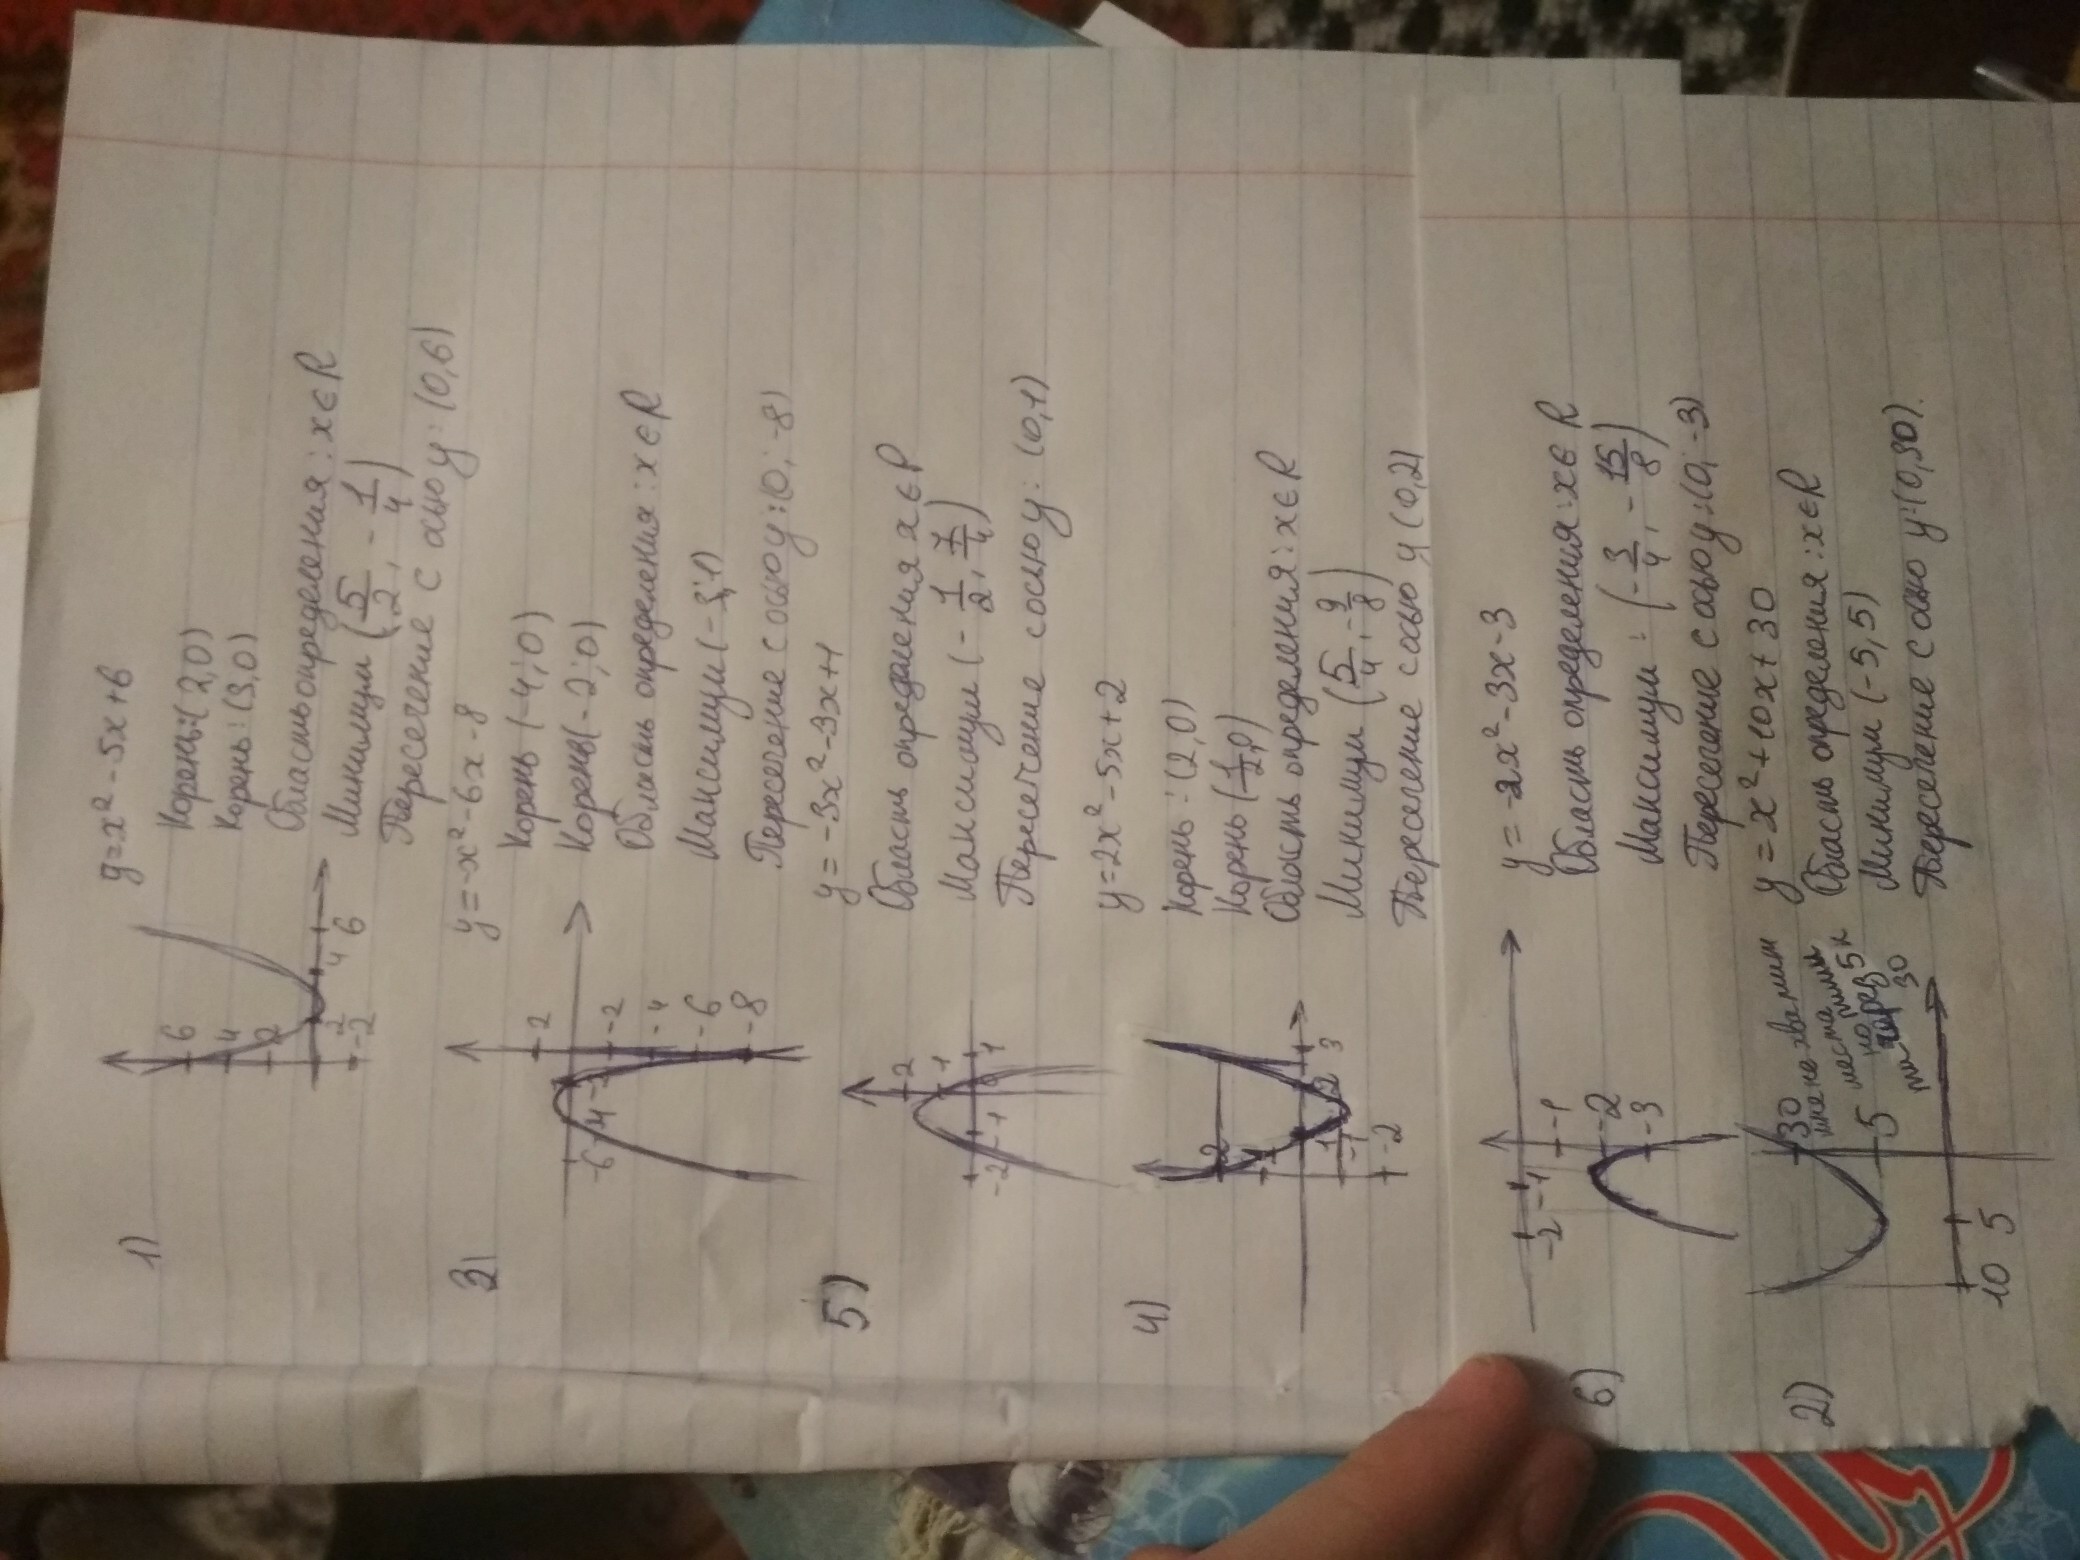 1)
y=x²-5x+6
Корень:(2,0)
Корень:(3,0)
Область определения: x∈R
Минимум (5/2, -1/4)
Пересечение с осью y: (0,6)
6
4
2
2
4
6
-2
3)
y=-x²-6x-8
Корень (-4;0)
Корень(-2;0)
Область определения: x∈R
Максимум(-3;1)
Пересечение с осью y:(0;-8)
-2
-6
-4
-2
-2
-4
-6
-8
5)
y=-3x²-3x+1
Область определения x∈R
Максимум (-1/2, 7/4)
Пересечение с осью y: (0,1)
2
1
-2
-1
1
4)
y=2x²-5x+2
Корень:(2,0)
Корень(1/2,0)
Область определения: x∈R
Минимум (5/4, -9/8)
Пересечение с осью y (0,2)
2
1
1
2
3
-1
-2
6)
y=-2x²-3x-3
Область определения: x∈R
Максимум: (-3/4, -15/8)
Пересечение с осью y:(0;-3)
-2
-1
-1
-2
-3
2)
y=x²+10x+30
Область определения: x∈R
Минимум (-5,5)
Пересечение с осью y:(0,30).
30
мне не хватит
места
но
через 5 к
30
5
10 5